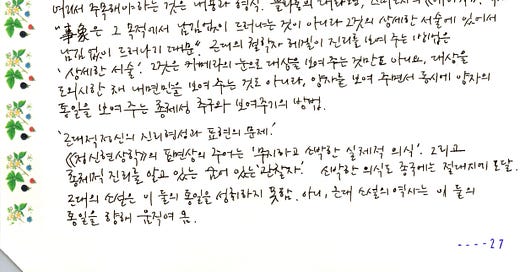 여기서 주목해야 하는 것은 내용과 형식. 플라톤의 대화편,
"事象은 그 목적에서 남김없이 드러나는 것이 아니라 그것의 상세한 서술에 있어서
남김 없이 드러나기 때문". 근대의 철학자 헤겔이 진리를 보여 주는 방법은
'상세한 서술'. 그것은 카메라의 눈으로 대상을 보여 주는 것만도 아니요, 대상을
도외시한 채 내면만을 보여 주는 것도 아니라, 양자를 보여 주면서 동시에 양자의
통일을 보여 주는 총체성 추구와 보여주기의 방법.
'근대적 정신의 진리 형성과 표현의 문제.'
《정신현상학》의 표면상의 주어는 '무지하고 소박한 실제적 의식'. 그리고
총체적 진리를 알고 있는 숨어 있는 '관찰자'. 소박한 의식도 종국에는 절대지에 도달.
근대의 소설은 이 둘의 통일을 성취하지 못함. 아니, 근대 소설의 역사는 이 둘의
통일을 향해 움직여 옴.
----27